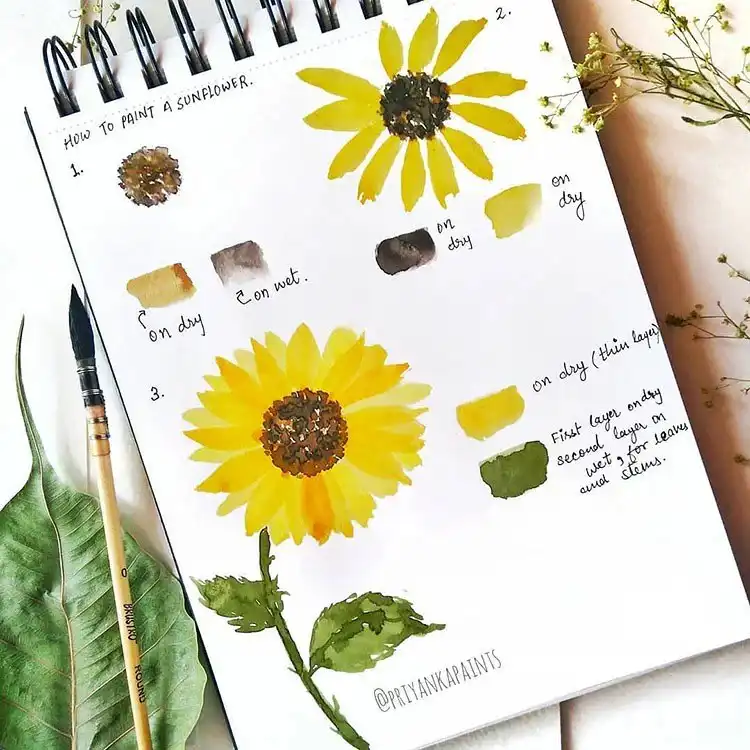 HOW TO PAINT A SUNFLOWER.
1.
2.
on dry
on wet.
on
dry
on
dry
3.
on dry (thin layer)
First layer on dry
second layer on
wet, for leaves
and stems.
@PRIYANKAPAINTS
0
BRUSTRO
ROUND